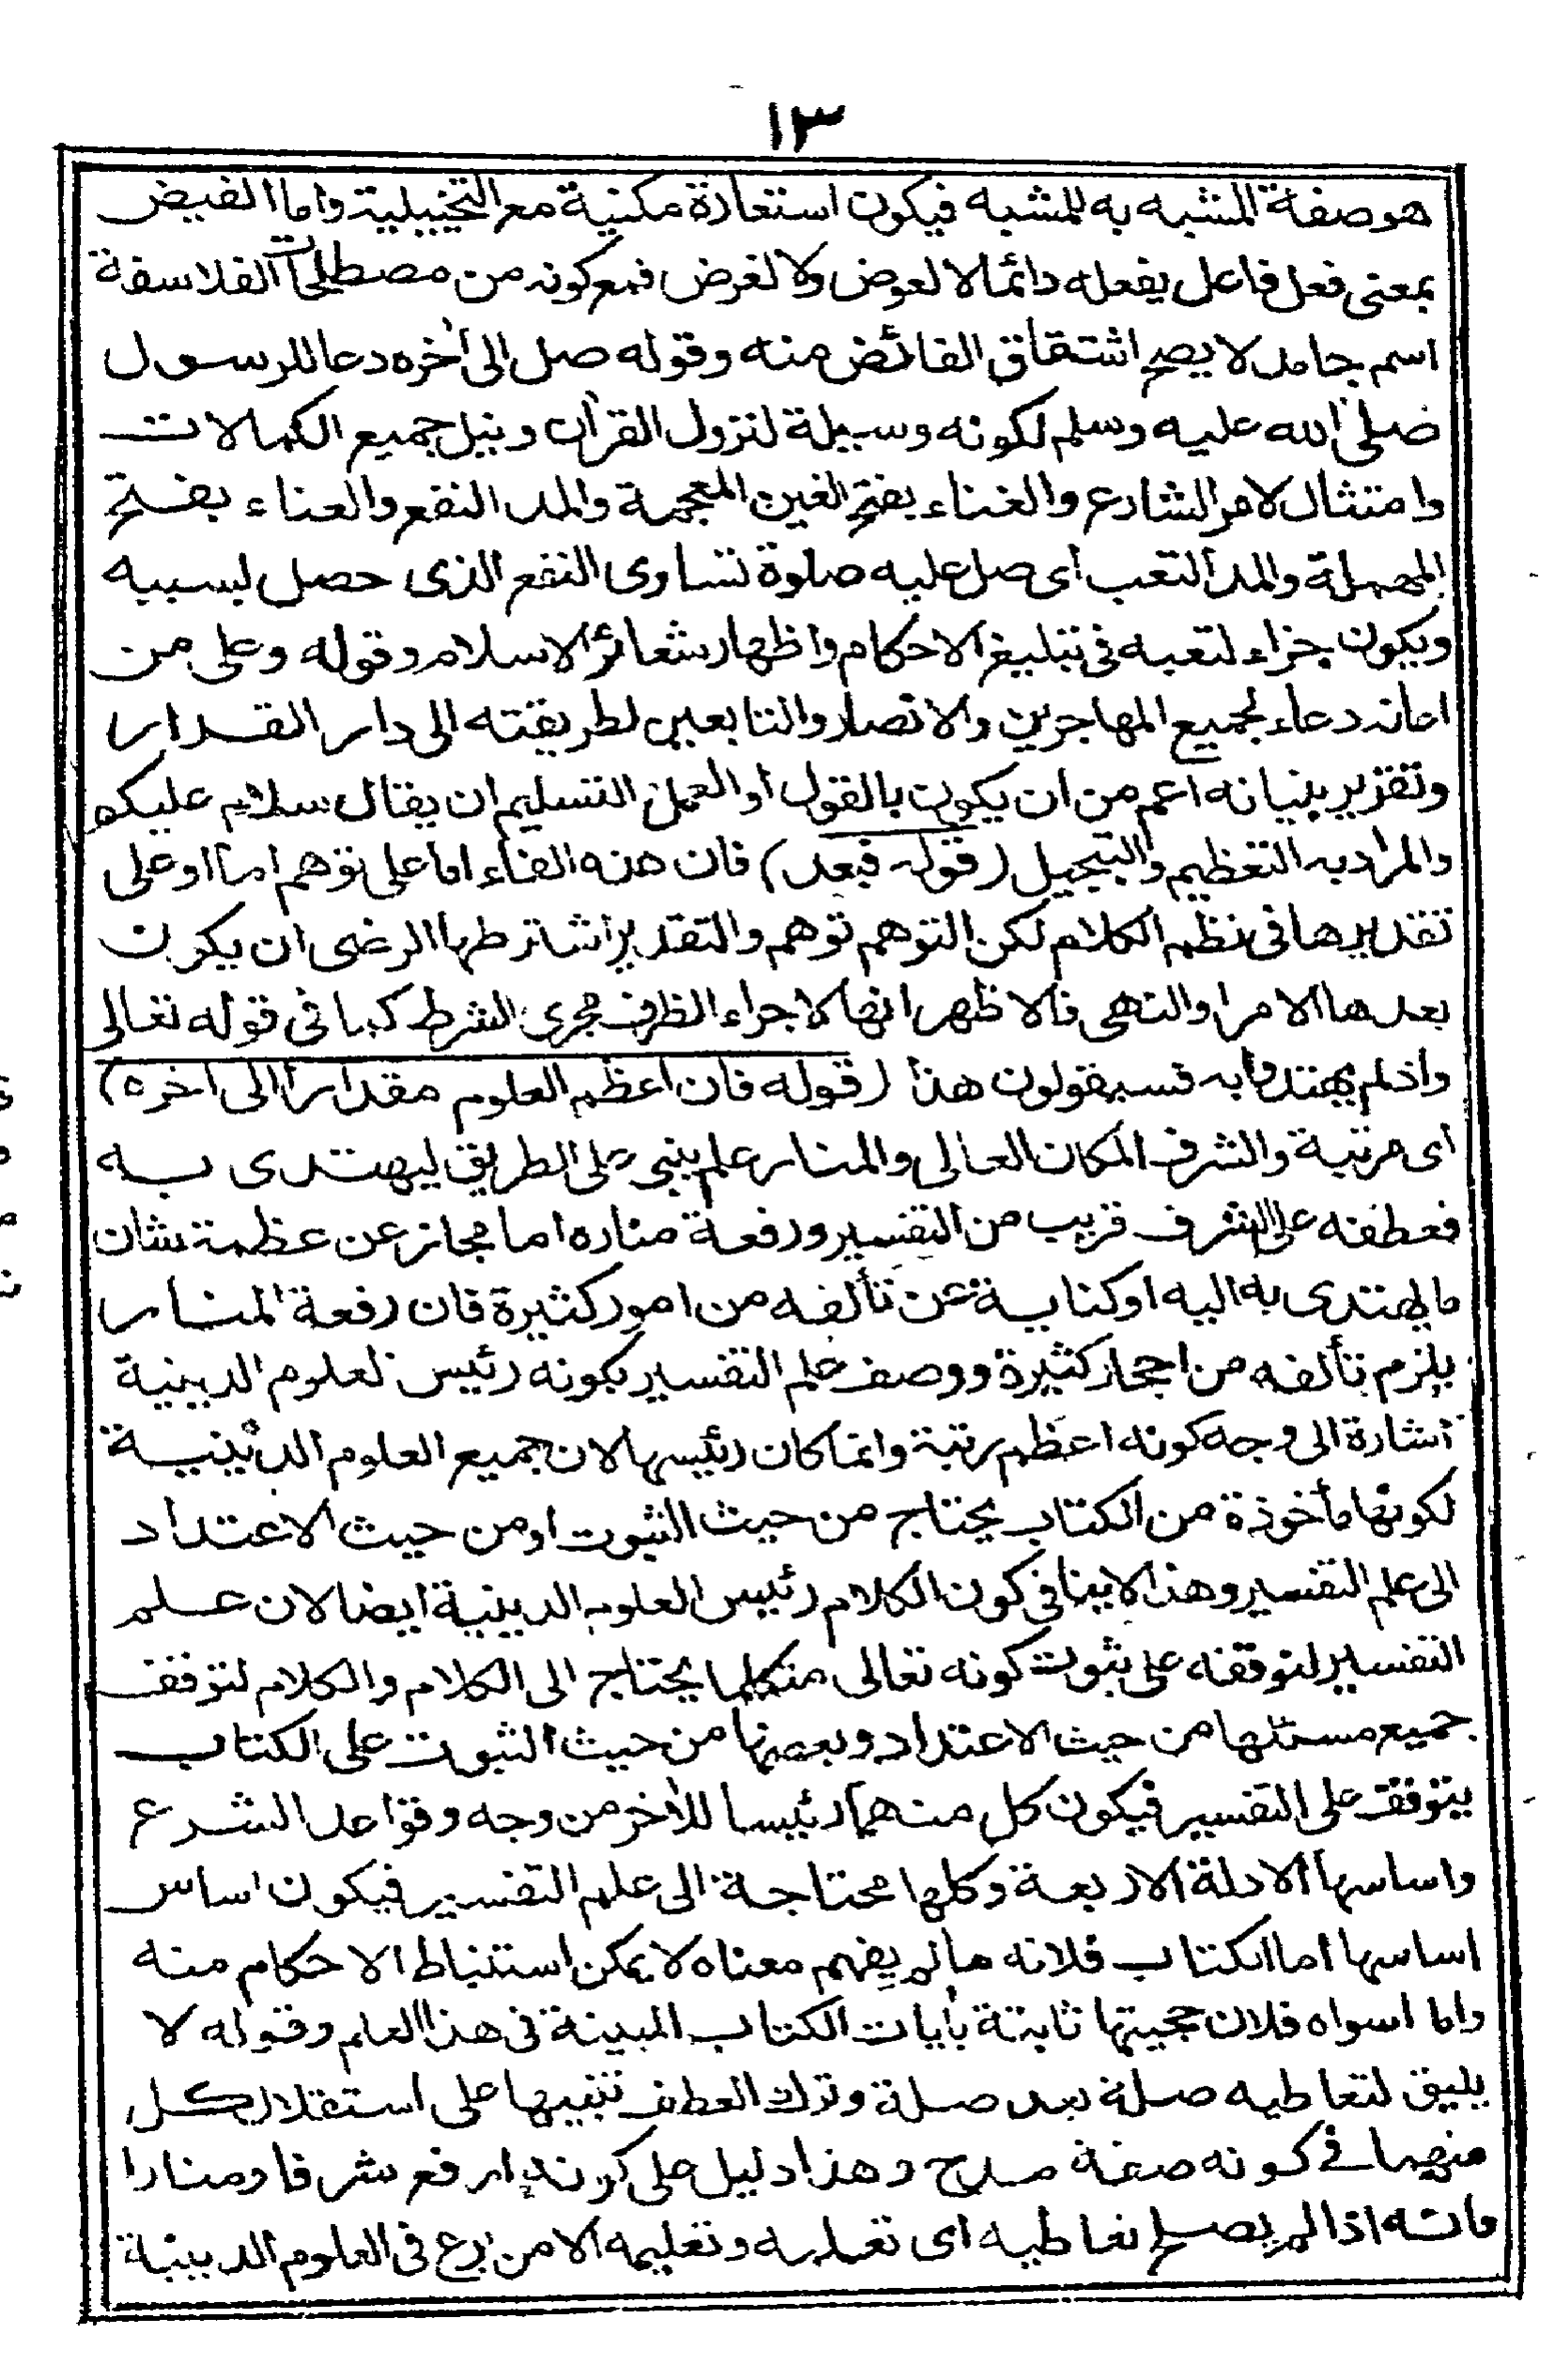 ١٣
هو صفة المشبه به للمشبه فيكون استعارة مكنية مع التخييلية واما الفيض
بمعنى فعل فاعل يفعله دائما لا لعوض ولا لغرض فمع كونه من مصطلحات الفلاسفة
اسم جامد لا يصح اشتقاق الفائض منه وقوله صل الى آخره دعا للرسول
صلى الله عليه وسلم لكونه وسيلة لنزول القرآن ونيل جميع الكمالات
وامتثال لامر الشارع والغناء بفتح الغين المعجمة والمد النفع والعناء بفتح
المهملة والمد التعب أى صل عليه صلوة تساوى النفع الذى حصل بسببه
ويكون جزاء لتعبه فى تبليغ الاحكام واظهار شعائر الاسلام وقوله وعلى من
اعانه دعاء لجميع المهاجرين والانصار والتابعين لطريقته الى دار القرار
وتقرير بنيانه اعم من ان يكون بالقول او العمل التسليم ان يقال سلام عليكم
والمراد به التعظيم والتبجيل (قوله فبعد) فان هذه الفاء اما على توهم اما او على
تقديرها فى نظم الكلام لكن التوهم توهم والتقدير اشترطها الرضى ان يكون
بعدها الامر او النهى فالاظهر انها لاجراء الظرف مجرى الشرط كما فى قوله تعالى
واذ لم يهتدوا به فسيقولون هذا (قوله فان اعظم العلوم مقدارا الى آخره)
اى مرتبة والشرف المكان العالى والمنار علم يبنى على الطريق ليهتدى به
فعطفه على الشرف قريب من التفسير ورفعة مناره اما مجاز عن عظمة شان
ما يهتدى به اليه او كناية عن تألفه من امور كثيرة فان رفعة المنار
يلزم تألفه من احجار كثيرة ووصف علم التفسير بكونه رئيس لعلوم الدينية
اشارة الى وجه كونه اعظم رتبة وانما كان رئيسها لان جميع العلوم الدينية
لكونها مأخوذة من الكتاب يحتاج من حيث الثبوت او من حيث الاعتداد
الى علم التفسير وهذا لا ينافى كون الكلام رئيس العلوم الدينية ايضا لان علم
التفسير لتوقفه على ثبوت كونه تعالى متكلما يحتاج الى الكلام والكلام لتوقف
جميع مسئلها من حيث الاعتداد وبعضها من حيث الثبوت على الكتاب
يتوقف على التفسير فيكون كل منهما رئيسا للآخر من وجه وقواعد الشرع
واساسها الادلة الاربعة وكلها محتاجة الى علم التفسير فيكون اساس
اساسها اما الكتاب فلانه ما لم يفهم معناه لا يمكن استنباط الاحكام منه
واما اسواه فلان حجيتها ثابتة بآيات الكتاب المبينة فى هذا العلم وقوله لا
يليق لتعاطيه صلة بعد صلة وترك العطف تنبيها على استقلال كل
منهما فى كونه صفة مدح وهذا دليل على كونه ارفع شرفا ومنارا
فانه اذا لم يصلح لتعاطيه اى تعلمه وتعليمه الا من برع فى العلوم الدينية